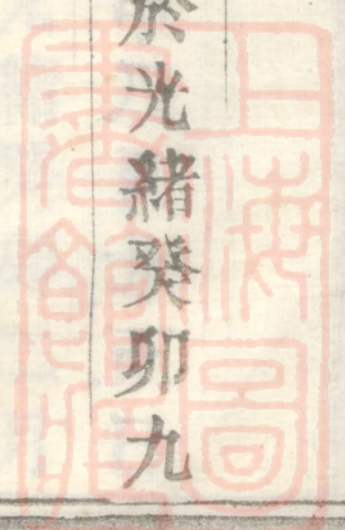 於光緒癸卯九
上海圖
書館藏